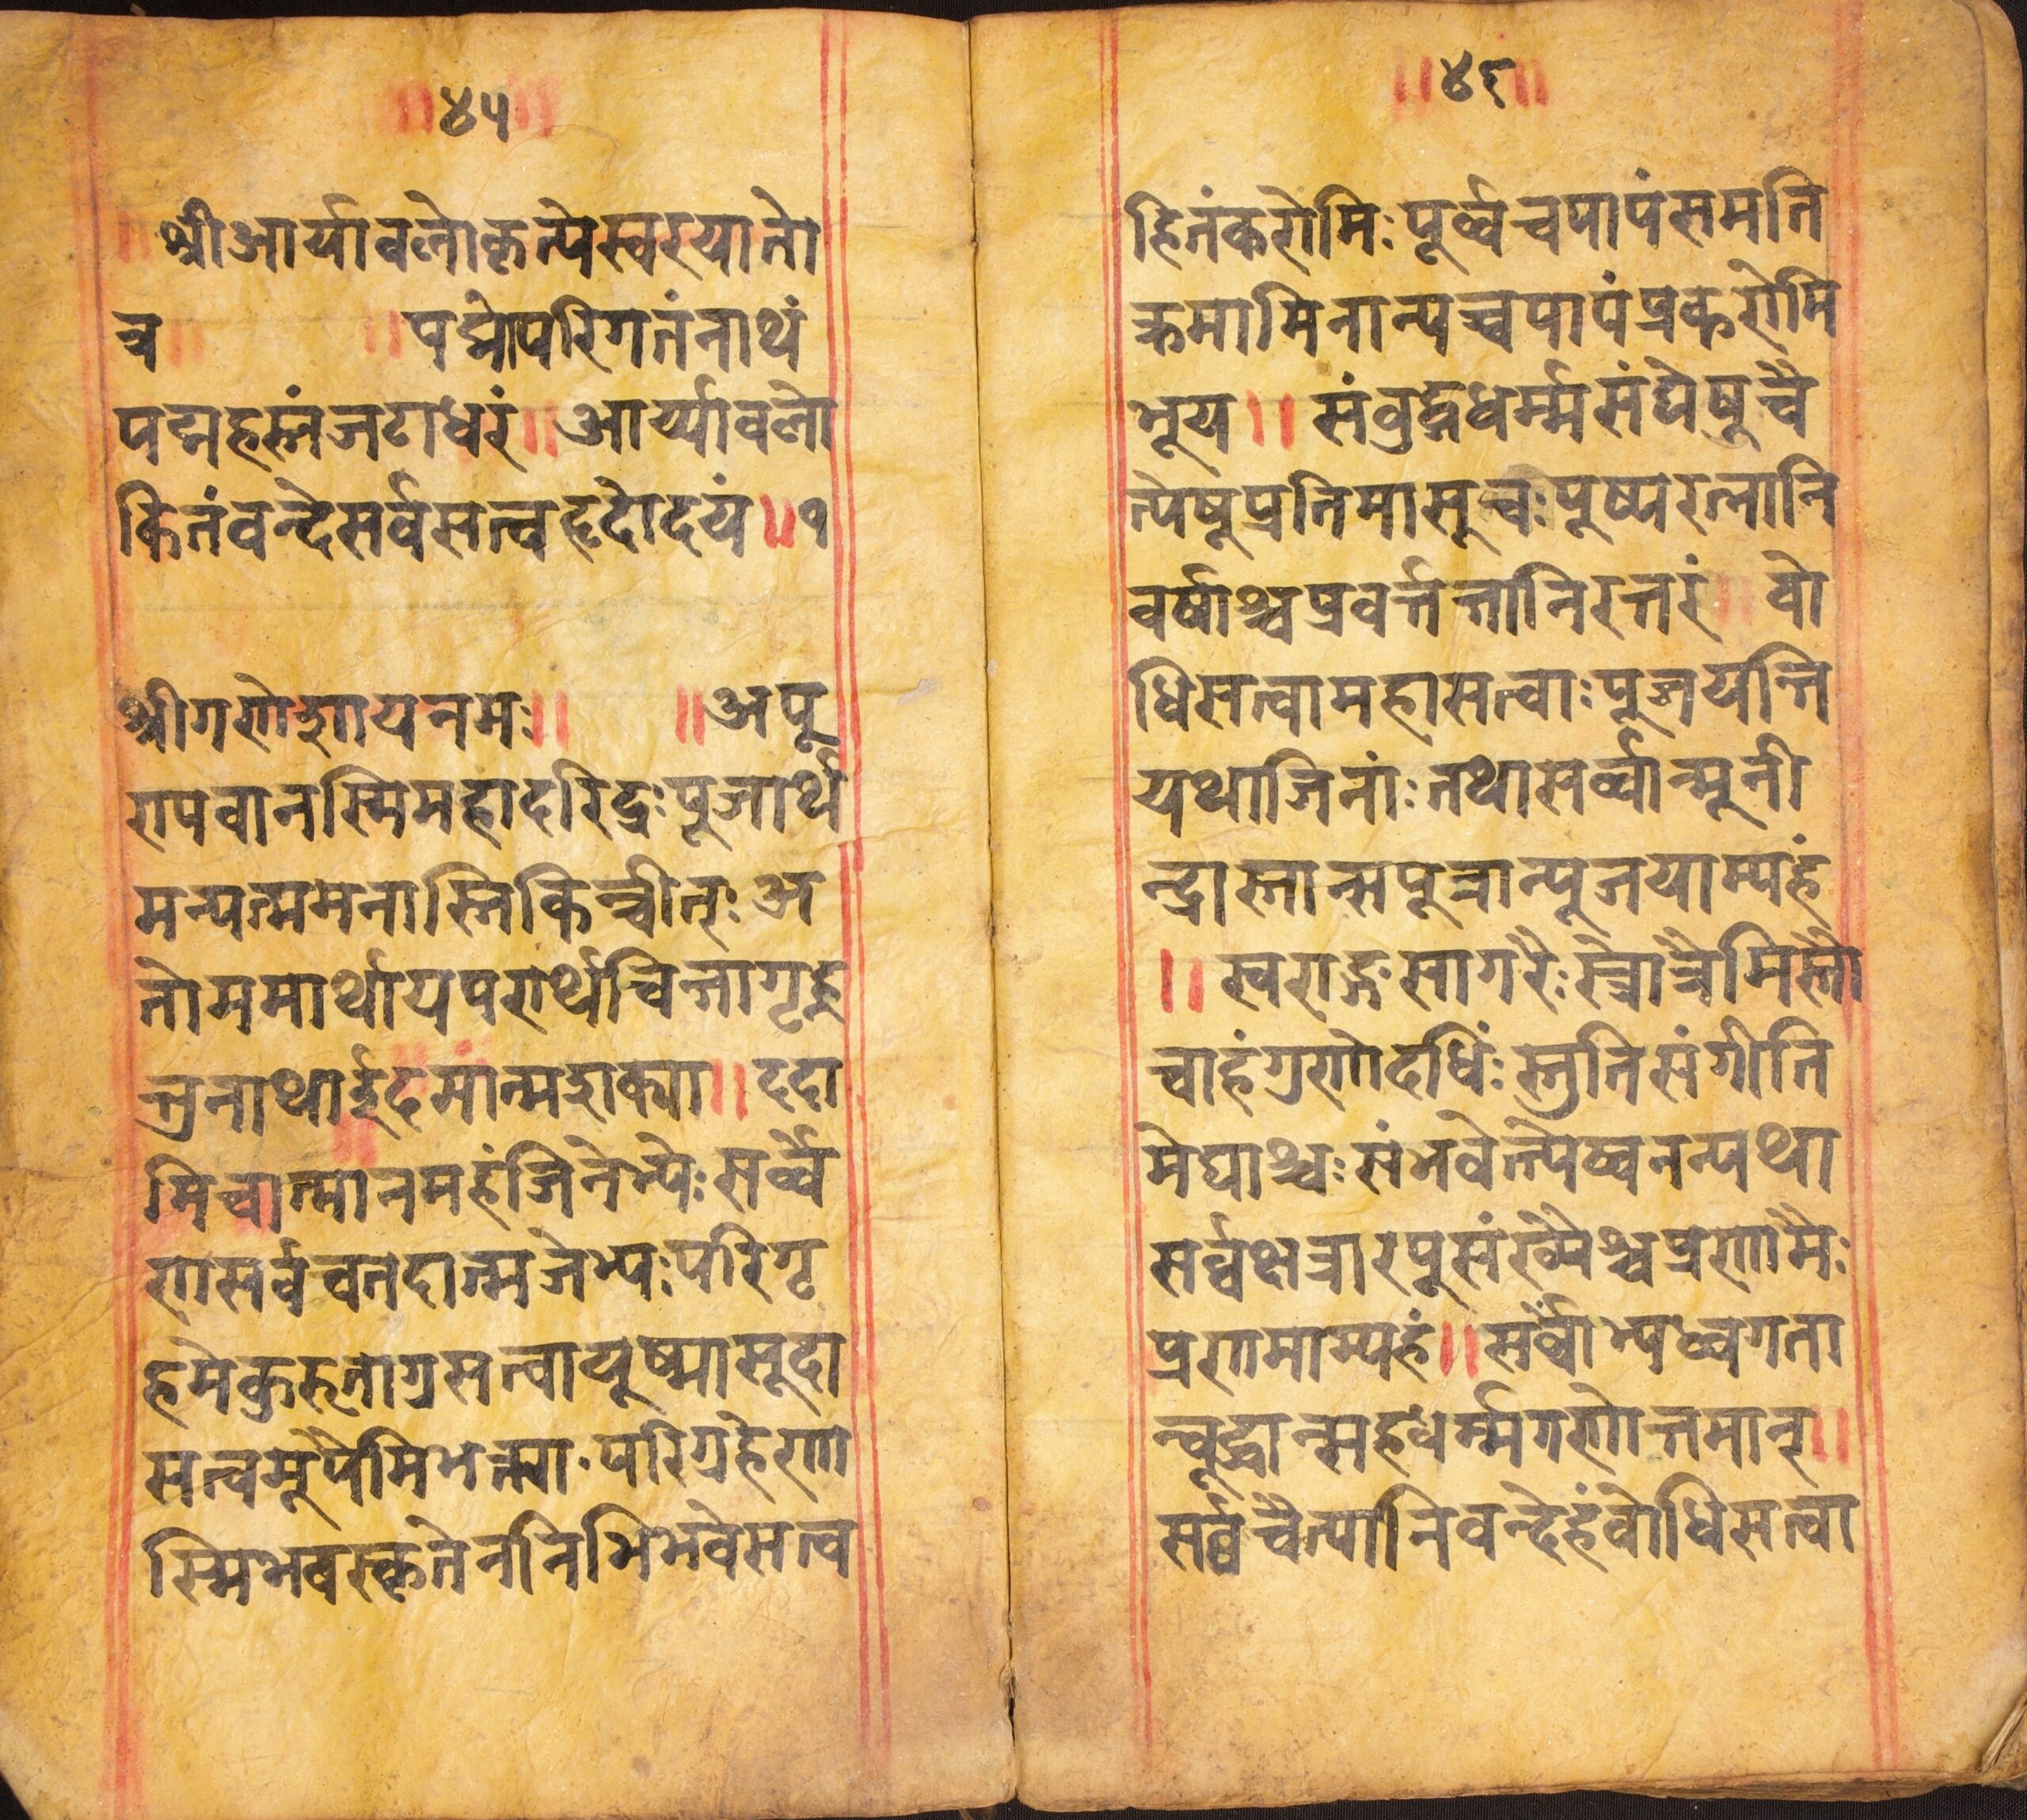 ॥४५॥
॥ श्रीआर्यावलोकृत्येस्वरयातो
त्र॥ ॥पद्मोपरिगतंनाथं
पद्महस्तंजटाधरं॥ आर्य्यावलो
कितंवन्देसर्वसत्वहृदोदयं॥१
श्रीगणेशायनमः॥ ॥अपू
णपवानस्मिमहादरिद्रः पूजार्थ
मन्यत्ममनास्तिकिन्चीतः अ
तोममार्थायपरार्थचिन्तागृह्ण
न्त्रनाथाईदमांत्मशक्या॥ ददा
मिचात्मानमहंजिनेभ्येः सर्व्वे
णसर्वंचतदात्मजेभ्यः परिगृ
हमेकुरुताग्रसत्वायुष्मासूदा
सत्वमूपैमिभक्त्या. परिग्रहेण
स्मिभवस्कृतेननिभिभवेसत्व
॥४६॥
हितंकरोमिः पूर्व्वचपापंसमति
क्रमामिनान्यच्चपापंप्रकरोमि
भूय॥ संवुद्धधर्म्मसंघेषुचै
त्येषूप्रतिमासूचः पूष्परत्नानि
वर्षाश्चप्रवर्त्तन्तानिरन्तरं॥ वो
धिसत्वामहासत्वाः पूजयन्ति
यथाजिनांः तथासर्व्वान्मूनी
न्द्रास्तान्सपूत्रान्पूजयाम्यहं
॥ स्वराङ्गसागरैः स्त्रोत्रैमिस्तौ
चाहंग्रणोदधिंः स्तुतिसंगीति
मेघाश्चः संभवेत्त्येष्वनन्यथा
सर्व्वक्षत्रारपूसंख्यैश्चप्रणामैः
प्रणमाम्यहं॥ सर्व्वांभ्यध्वगता
न्वूद्धान्सहधर्म्मगणोत्तमान्॥
सर्व्वचैत्यानिवन्देहंवोधिसत्वा